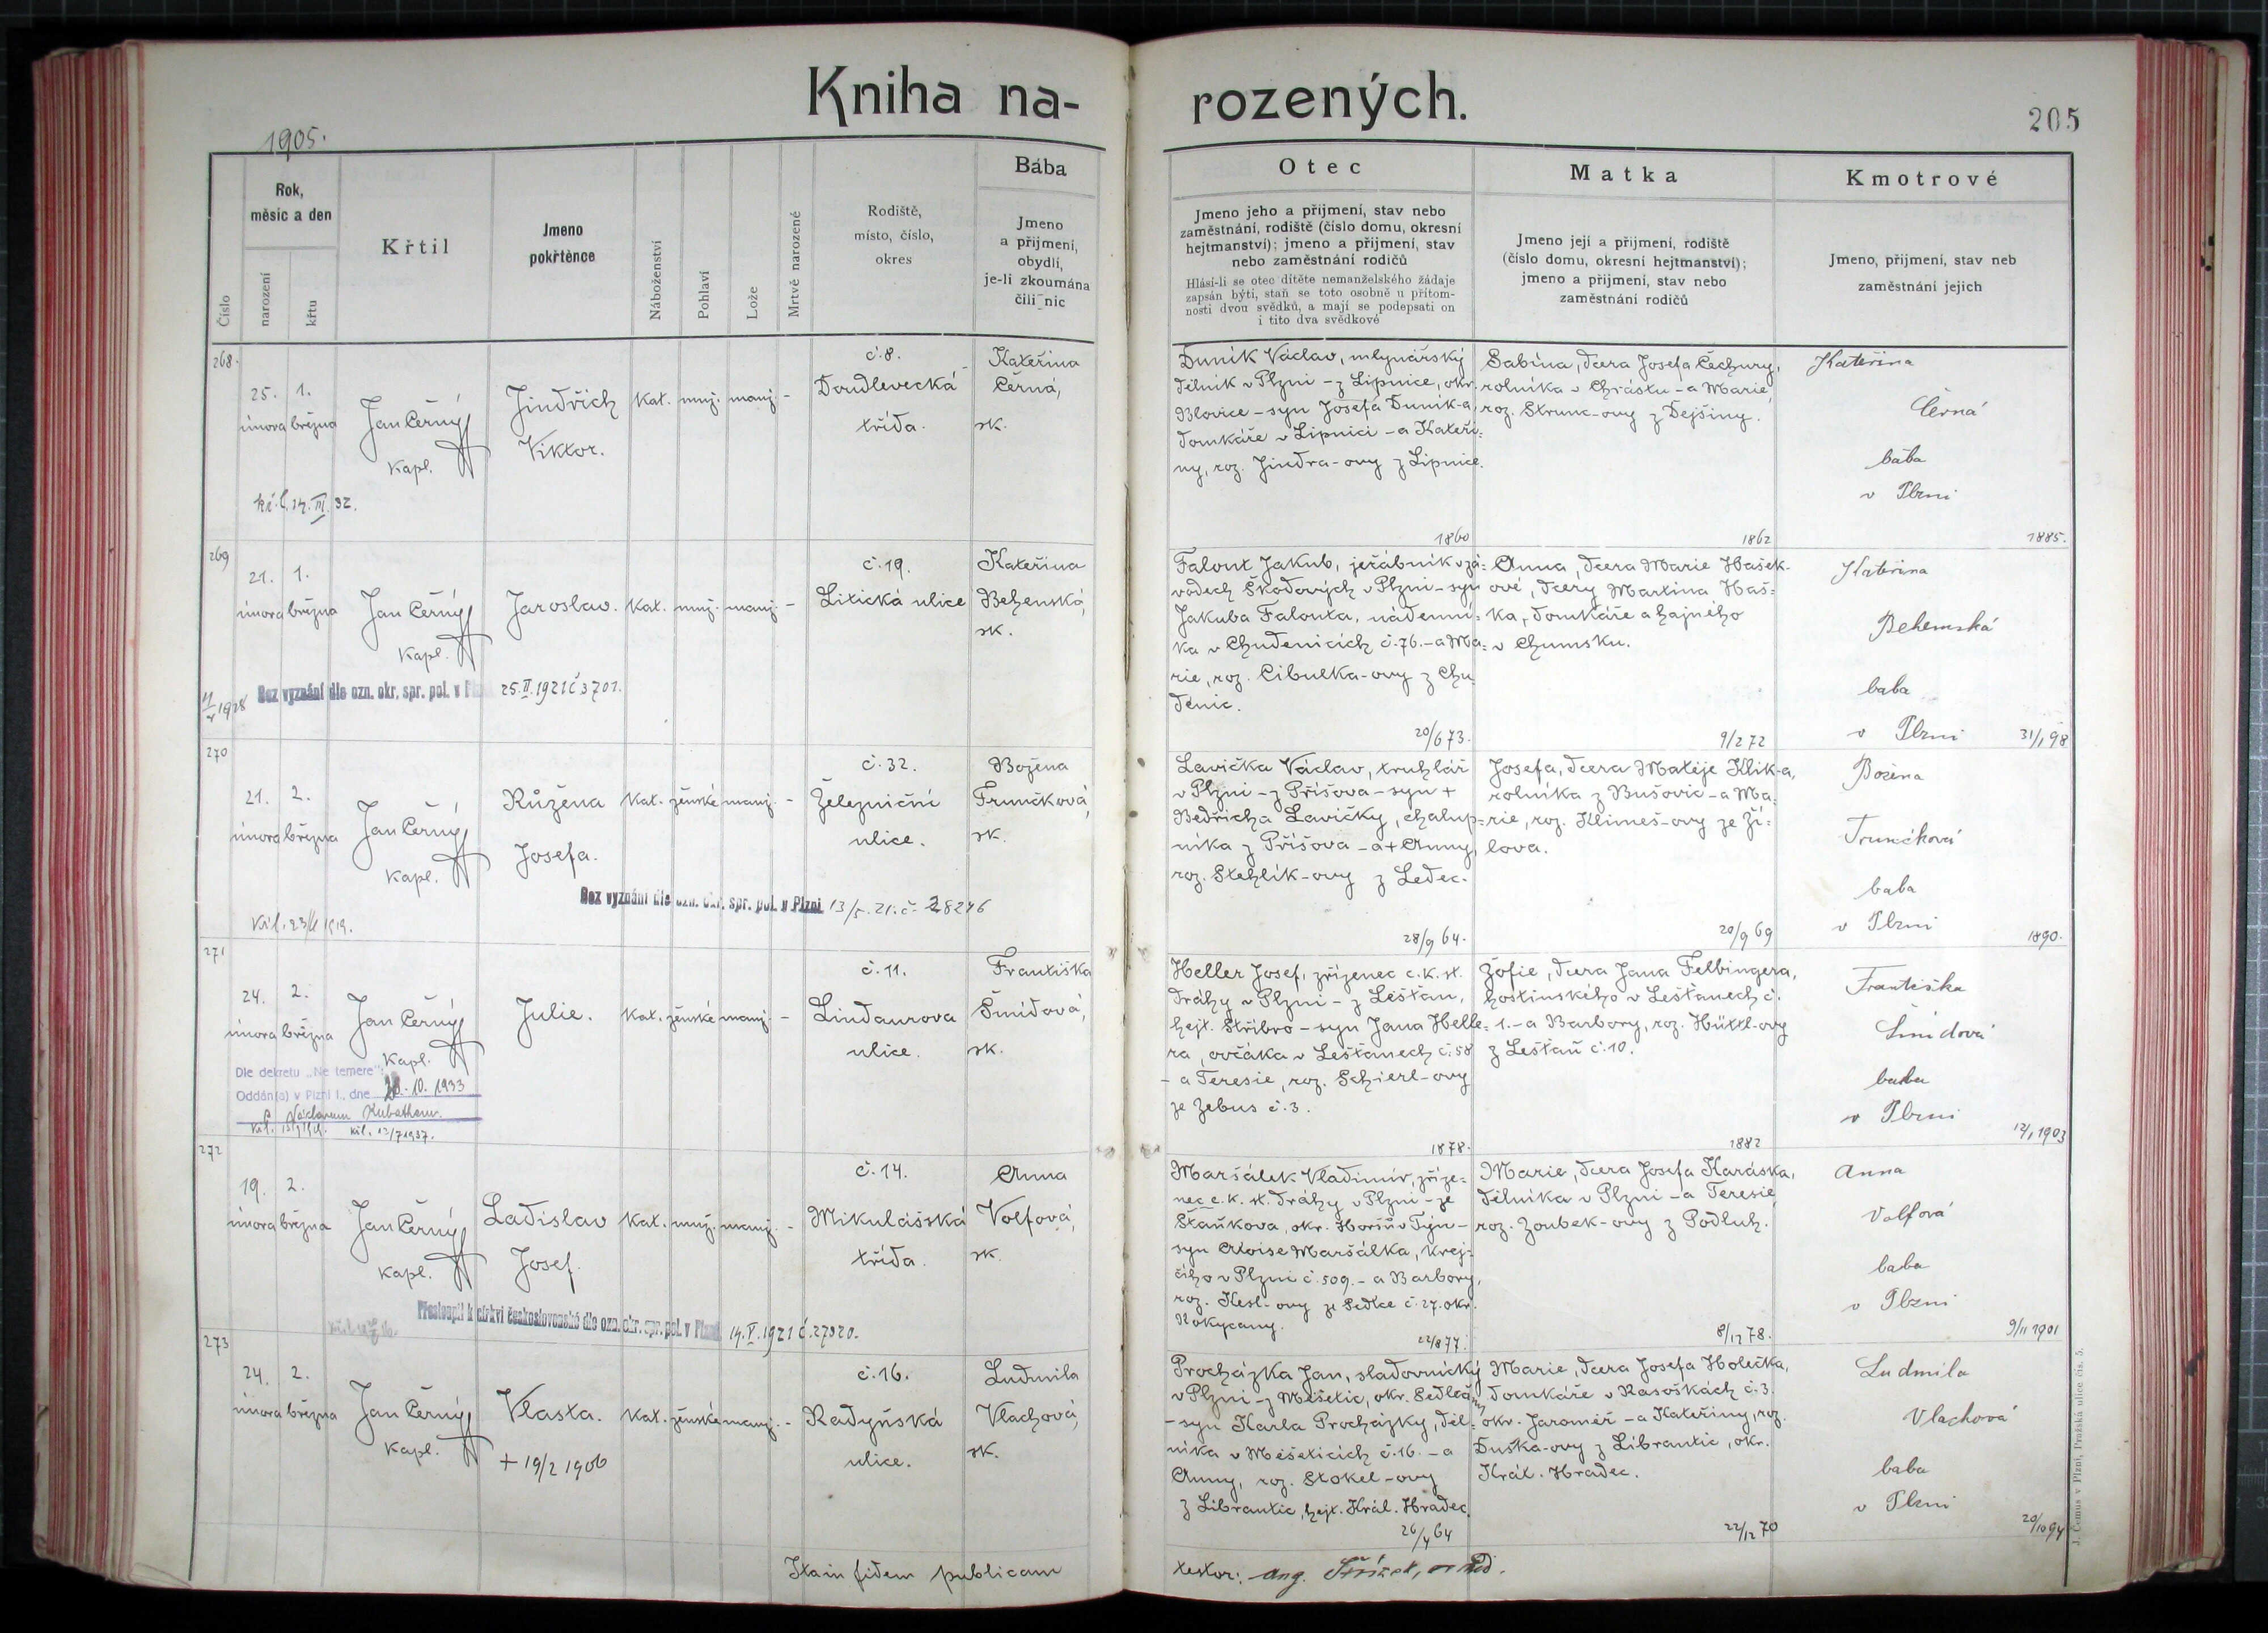 Kniha na-
rozených.
205
1905.
Číslo
Rok,
měsíc a den
narození
křtu
Křtil
Jmeno
pokřtěnce
Náboženství
Pohlaví
Lože
Mrtvě narozené
Rodiště,
místo, číslo,
okres
Bába
Jmeno
a přijmení,
obydlí,
je-li zkoumána
čili nic
Otec
Jmeno jeho a přijmení, stav nebo
zaměstnání, rodiště (číslo domu, okresní
hejtmanství); jmeno a přijmení, stav
nebo zaměstnání rodičů
Hlásí-li se otec dítěte nemanželského žádaje
zapsán býti, staň se toto osobně u přítom-
nosti dvou svědků, a mají se podepsati on
i tito dva svědkové
Matka
Jmeno její a přijmení, rodiště
(číslo domu, okresní hejtmanství);
jmeno a přijmení, stav nebo
zaměstnání rodičů
Kmotrové
Jmeno, přijmení, stav neb
zaměstnání jejich
268.
25.
února
1.
března
Jan Černý
kapl.
Jindřich
Viktor.
kat.
muž.
manž.
-
č. 8.
Doudlevecká
třída.
Kateřina
Černá,
zk.
14. III. 32.
Duník Václav, mlynářský
dělník v Plzni - z Lipnice, okr.
Blovice - syn Josefa Duník-a,
domkáře v Lipnici - a Kateři-
ny, roz. Jindra-ovy z Lipnice.
1860
Sabina, dcera Josefa Čechury,
rolníka v Chrástu - a Marie,
roz. Strunc-ovy z Dejšiny.
1862
Kateřina
Černá
bába
v Plzni
1885.
269
21.
února
1.
března
Jan Černý
kapl.
Jaroslav.
kat.
muž.
manž.
-
č. 19.
Litická ulice
Kateřina
Behenská,
zk.
Bez vyznání dle ozn. okr. spr. pol. v Plzni 25. II. 1921 č 3701.
Falout Jakub, jeřábník v zá-
vodech Škodových v Plzni - syn
Jakuba Falouta, nádenní-
ka v Chudenicích č. 76. - a Ma-
rie, roz. Cibulka-ovy z Chu
denic.
20/6 73.
Anna, dcera Marie Hašek-
ové, dcery Martina Haš-
ka, domkáře a hajného
v Chumsku.
9/2 72
Kateřina
Behenská
baba
v Plzni
31/1 98
270
21.
února
2.
března
Jan Černý
kapl.
Růžena
Josefa.
kat.
ženské
manž.
-
č. 32.
Železniční
ulice.
Božena
Frunčková,
zk.
Bez vyznání dle ozn. okr. spr. pol. v Plzni 13/5. 21. č. 28246
Lavička Václav, truhlář
v Plzni - z Příšova - syn +
Bedřicha Lavičky, chalup-
níka z Příšova - a + Anny,
roz. Stehlík-ovy z Ledec.
28/9 64.
Josefa, dcera Matěje Klik-a,
rolníka z Bušovic - a Ma-
rie, roz. Klimeš-ovy ze Ži-
lova.
20/9 69
Božena
Trunčková
baba
v Plzni
1890.
271
24.
února
2.
března
Jan Černý
kapl.
Julie.
kat.
ženské
manž.
-
č. 11.
Lindaurova
ulice.
Františka
Šmídová,
zk.
Dle dekretu „Ne temere“:
Oddán(a) v Plzni I., dne 28. 10. 1933
s Václavem Kubathem.
Heller Josef, zřízenec c. k. st.
dráhy v Plzni - z Lešťan,
hejt. Stříbro - syn Jana Helle-
ra, ovčáka v Lešťanech č. 58
- a Teresie, roz. Schierl-ovy
ze Zebus č. 3.
1878.
Žofie, dcera Jana Felbingera,
hostinského v Lešťanech č.
1. - a Barbory, roz. Hüttl-ovy
z Lešťan č. 10.
1882
Františka
Šmídová
baba
v Plzni
12/1 1903
272
19.
února
2.
března
Jan Černý
kapl.
Ladislav
Josef.
kat.
muž.
manž.
-
č. 14.
Mikulášská
třída.
Anna
Volfová,
zk.
Přestoupil k církvi československé dle ozn. okr. spr. pol. v Plzni 14. V. 1921 č. 27920.
Maršálek Vladimír, zříze-
nec c. k. st. dráhy v Plzni - ze
Staňkova, okr. Horšův Týn -
syn Aloise Maršálka, krej-
čího v Plzni č. 509. - a Barbory,
roz. Kesl-ovy ze Sedlce č. 27. okr.
Rokycany.
22/8 77.
Marie, dcera Josefa Karáska,
dělníka v Plzni - a Teresie
roz. Zoubek-ovy z Podluh.
8/12 78.
Anna
Volfová
baba
v Plzni
9/11 1901
273
24.
února
2.
března
Jan Černý
kapl.
Vlasta.
+ 19/2 1906
kat.
ženské
manž.
-
č. 16.
Radyňská
ulice.
Ludmila
Vlachová,
zk.
Procházka Jan, sladovnický
v Plzni - z Mešetic, okr. Sedlčany
- syn Karla Procházky, děl-
níka v Mešeticích č. 16. - a
Anny, roz. Stokel-ovy
z Librantic, hejt. Král. Hradec.
26/4 64
Marie, dcera Josefa Holečka,
domkáře v Rasoškách č. 3.
okr. Jaroměř - a Kateřiny, roz.
Duška-ovy z Librantic, okr.
Král. Hradec.
22/12 70
Ludmila
Vlachová
baba
v Plzni
20/10 94
Itam fidem publicam
testor:
J. Čemus v Plzni, Pražská ulice čís. 5.